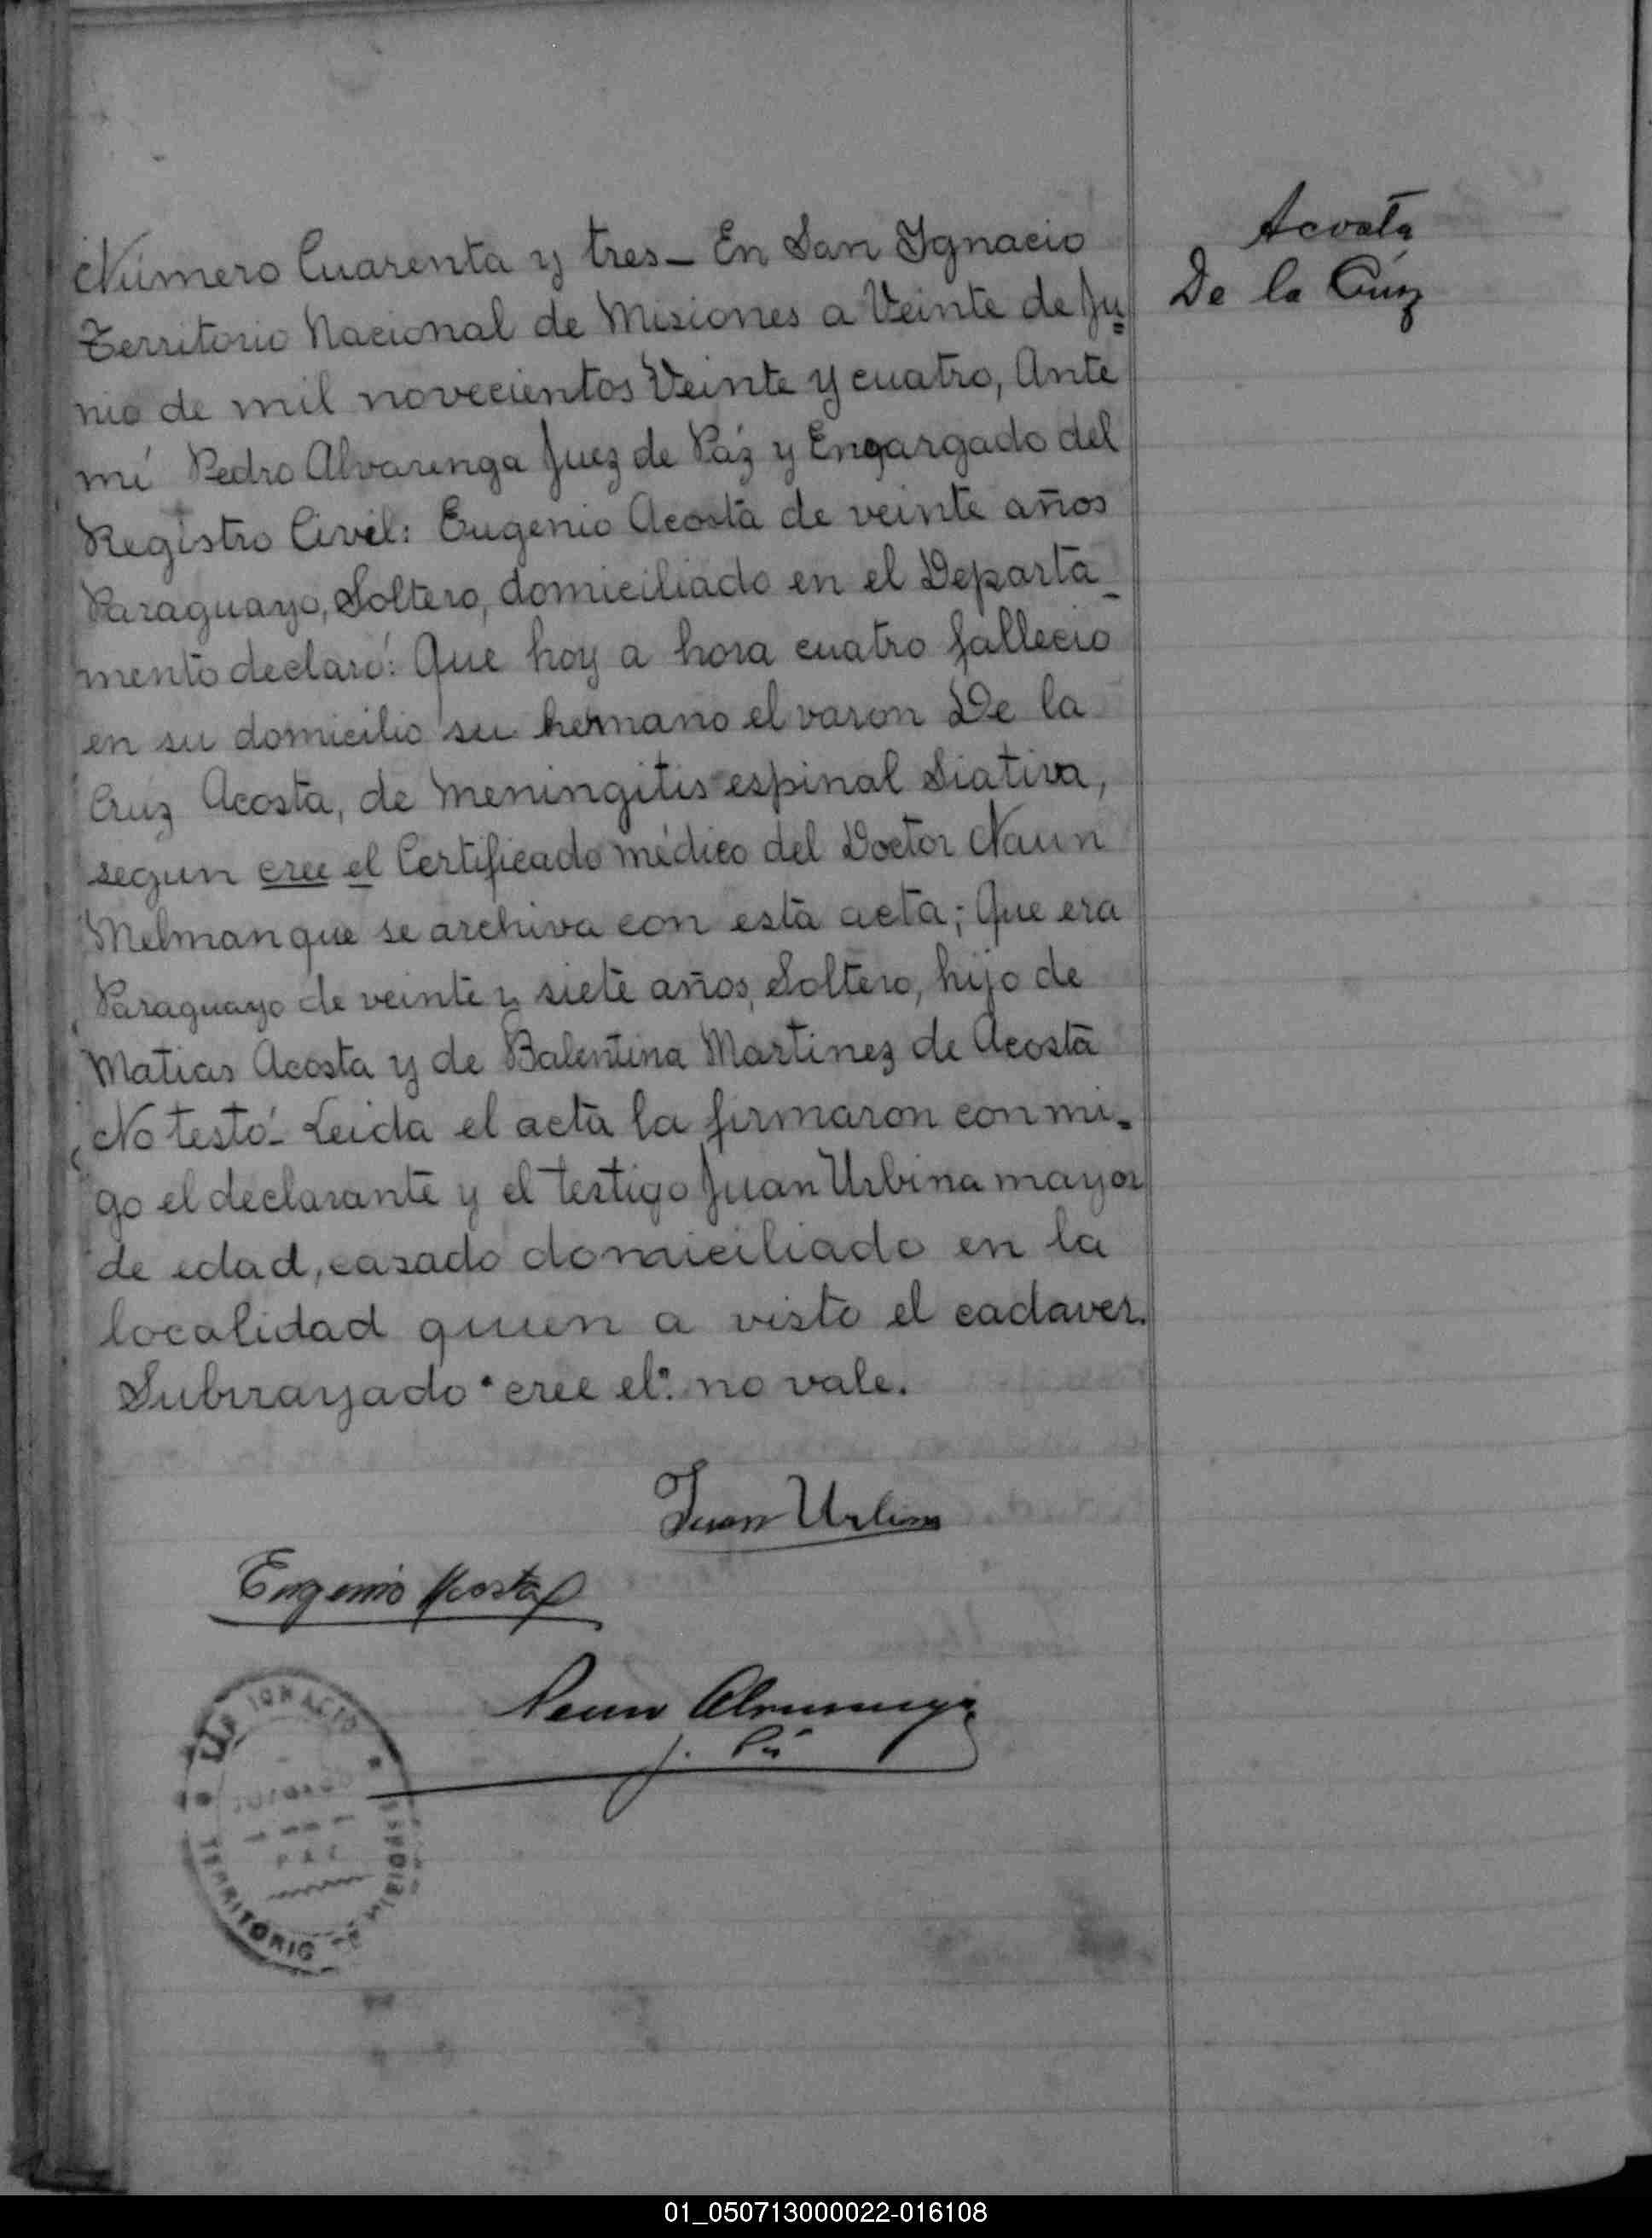 Acosta
De la Crúz
Número Cuarenta y tres_ En San Ygnacio
Territorio Nacional de Misiones a Veinte de Ju=
nio de mil novecientos Veinte y cuatro, Ante
mí Pedro Alvarenga Juez de Páz y Encargado del
Registro Civil: Eugenio Acosta de veinte años
Paraguayo, Soltero, domiciliado en el Departa_
mento declaró: Que hoy a hora cuatro fallecio
en su domicilio su hermano el varon De la
Crúz Acosta, de Meningitis espinal Siativa,
segun cree el Certificado médico del Doctor Naun
Melman que se archiva con esta acta; Que era
Paraguayo de veinte y siete años, Soltero, hijo de
Matias Acosta y de Balentina Martinez de Acosta
No testó_ Leida el acta la firmaron conmi=
go el declarante y el testigo Juan Urbina mayor
de edad, casado domiciliado en la
localidad quien a visto el cadaver.
Subrrayado "cree el": no vale.
Juan Urbina
Eugenio Acosta
Alvarenga
J. Pá
IGNACIO
JUZGADO
PAZ
TERRITORIO
MISIONES
01_050713000022-016108